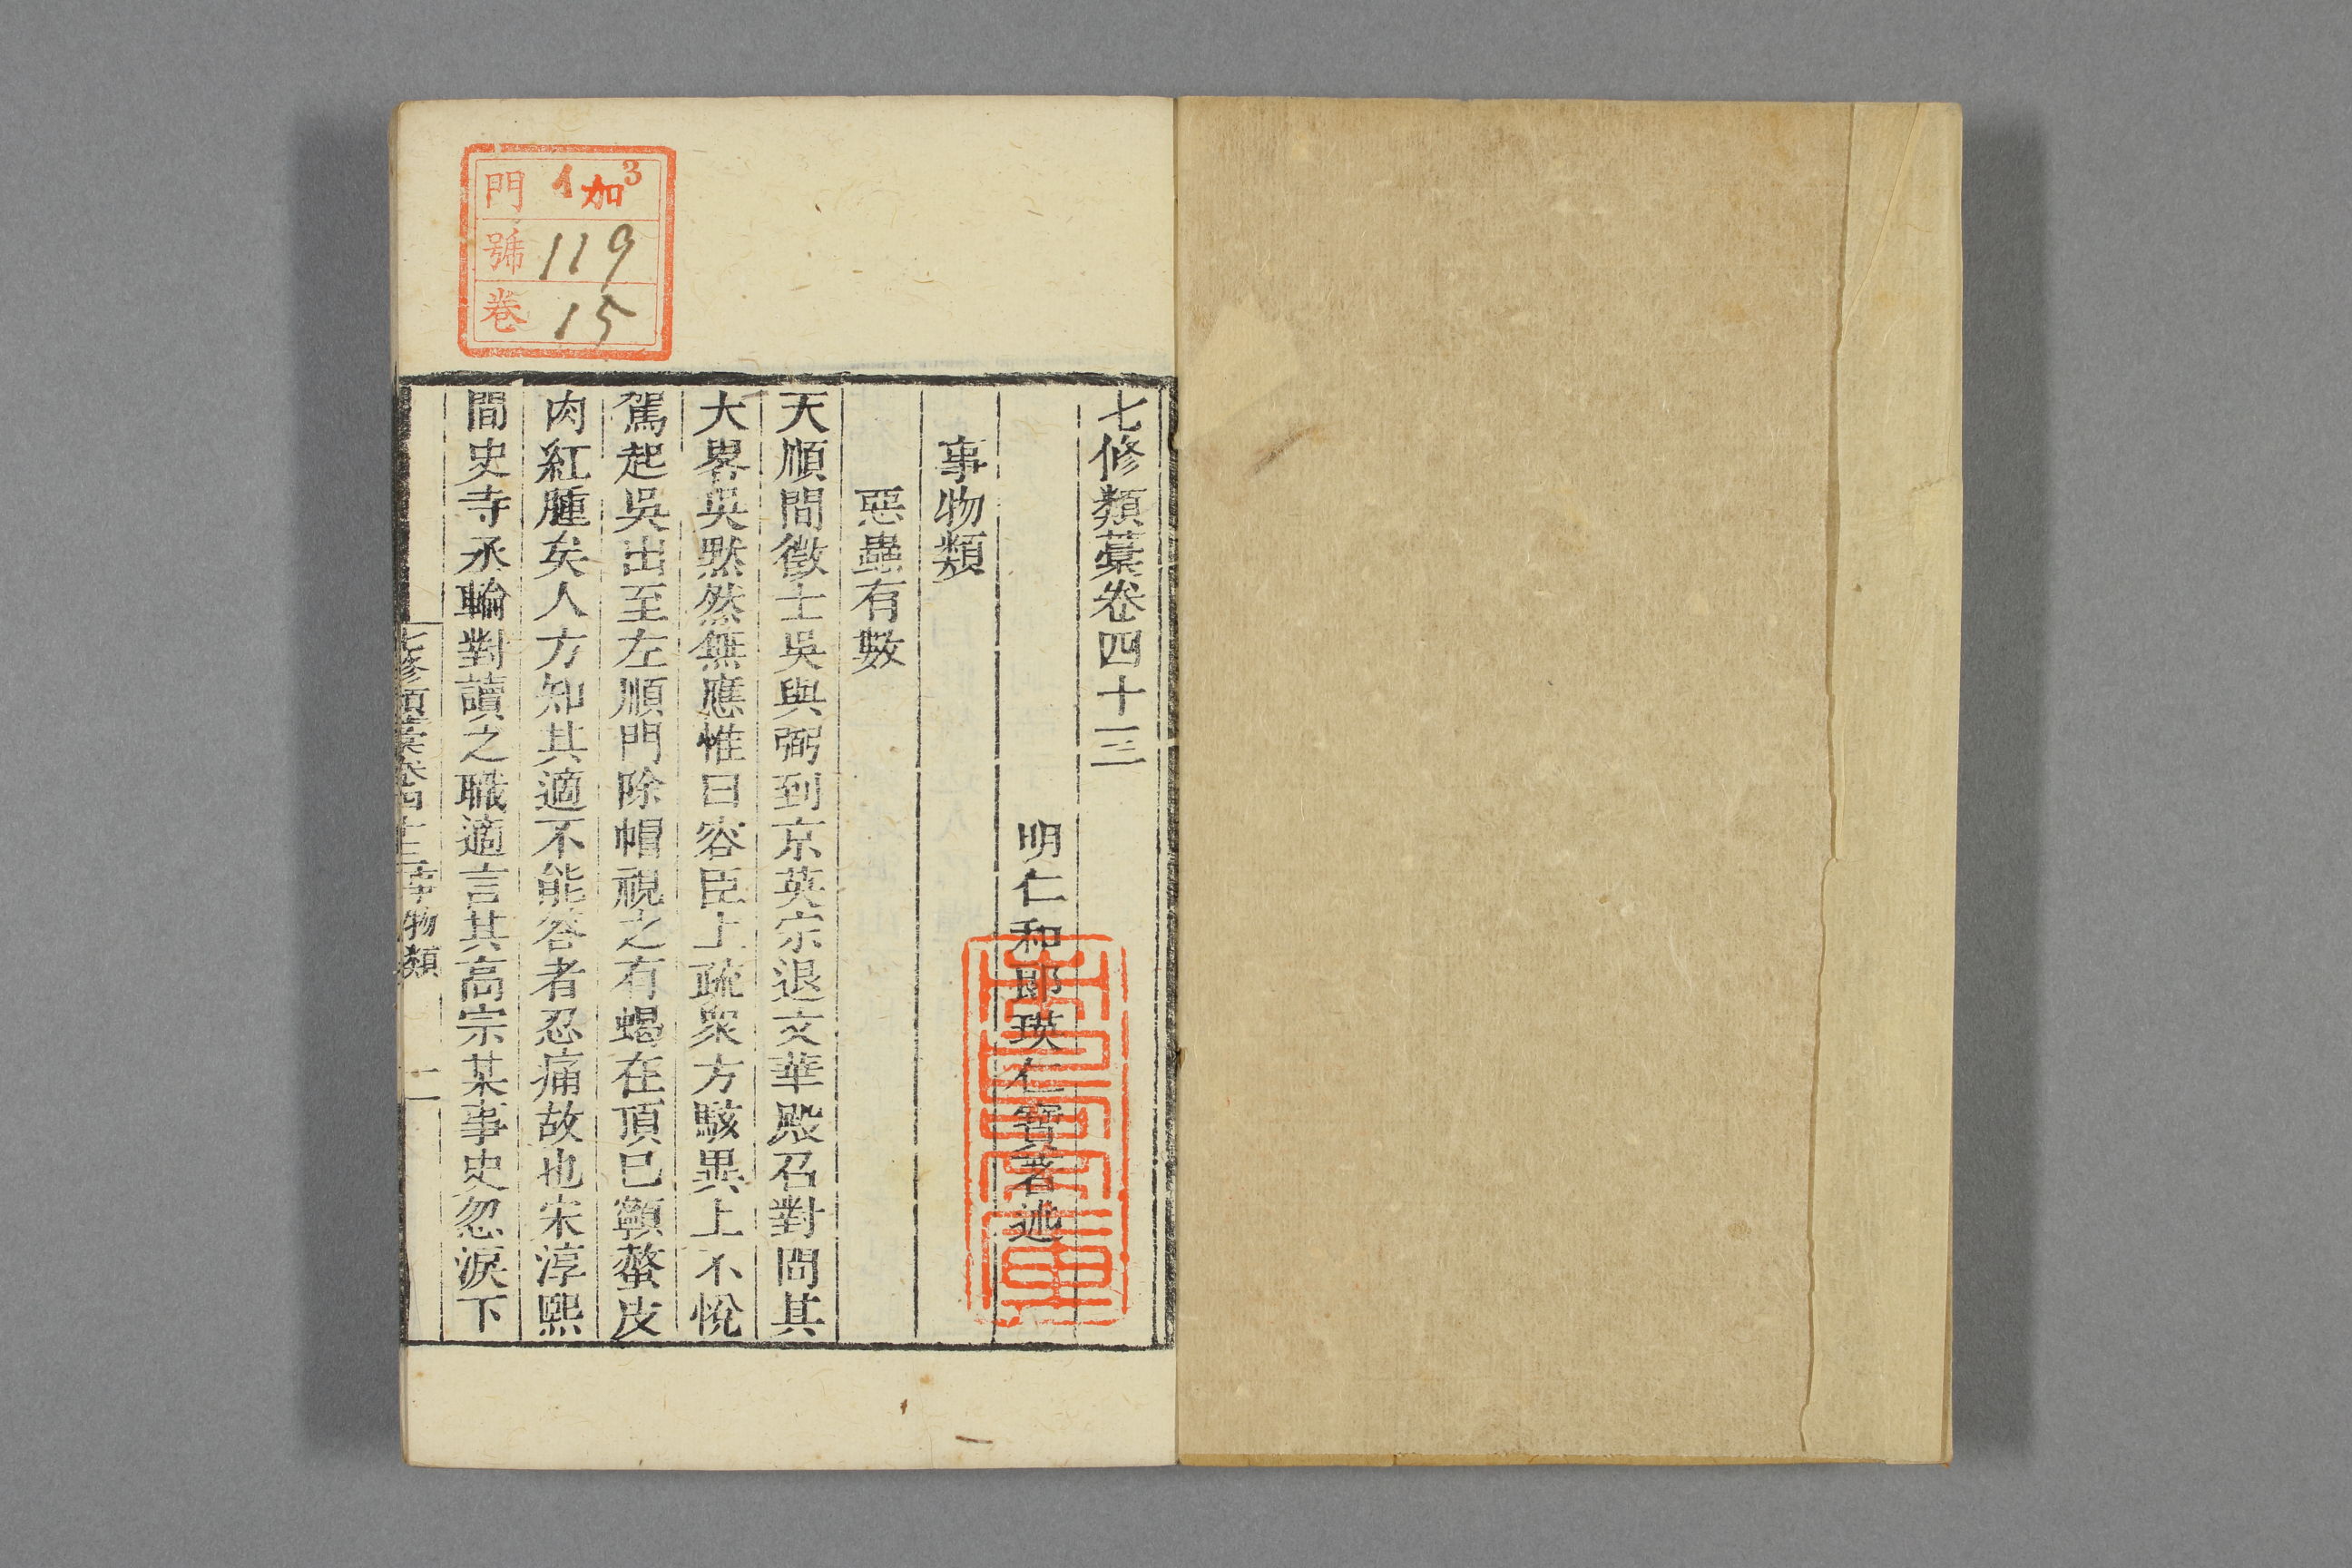 七修類藁卷四十三
明仁和郎瑛仁寶著述
事物類
惡蟲有數
天順間徵士吳與弼到京英宗退文華殿召對問其
大畧吳默然無應惟曰容臣上疏衆方駭異上不悅
駕起吳出至左順門除帽視之有蝎在頂巳顙螫皮
肉紅腫矣人方知其適不能答者忍痛故也宋淳熙
間史寺丞輪對讀之職適言其高宗某事史忽淚下
七修類藁卷四十三事物類 一
門 1加3
號 119
卷 15